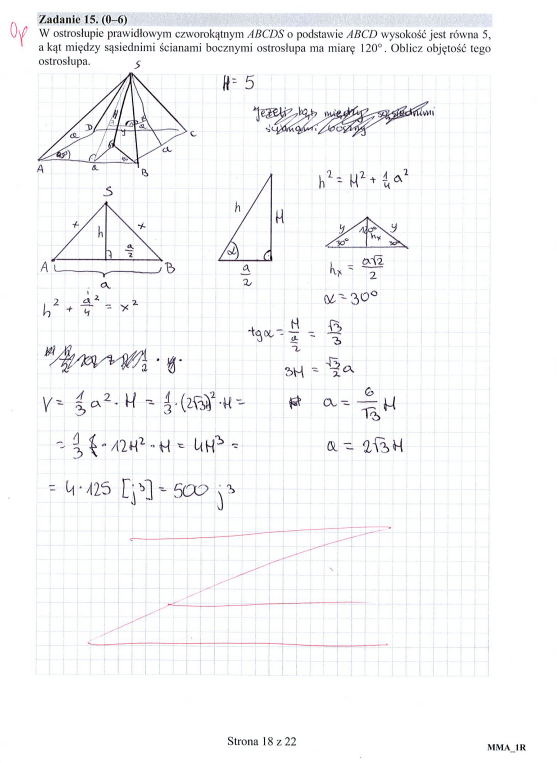 0p
Zadanie 15. (0–6)
W ostrosłupie prawidłowym czworokątnym ABCDS o podstawie ABCD wysokość jest równa 5,
a kąt między sąsiednimi ścianami bocznymi ostrosłupa ma miarę 120°. Oblicz objętość tego
ostrosłupa.
S
H = 5
D
C
A
B
a
a
a
S
x
h
x
a/2
A
B
a
h
H
α
a/2
h² = H² + 1/4 a²
y
120°
y
30°
hₓ
30°
hₓ = a√2/2
α = 30°
h² + a²/4 = x²
tgα = H/(a/2) = √3/3
3H = √3/2 a
V = 1/3 a² · H = 1/3 · (2√3H)² · H =
a = 6/√3 H
= 1/3 · 12H² · H = 4H³ =
a = 2√3 H
= 4 · 125 [j³] = 500 j³
Strona 18 z 22
MMA_1R